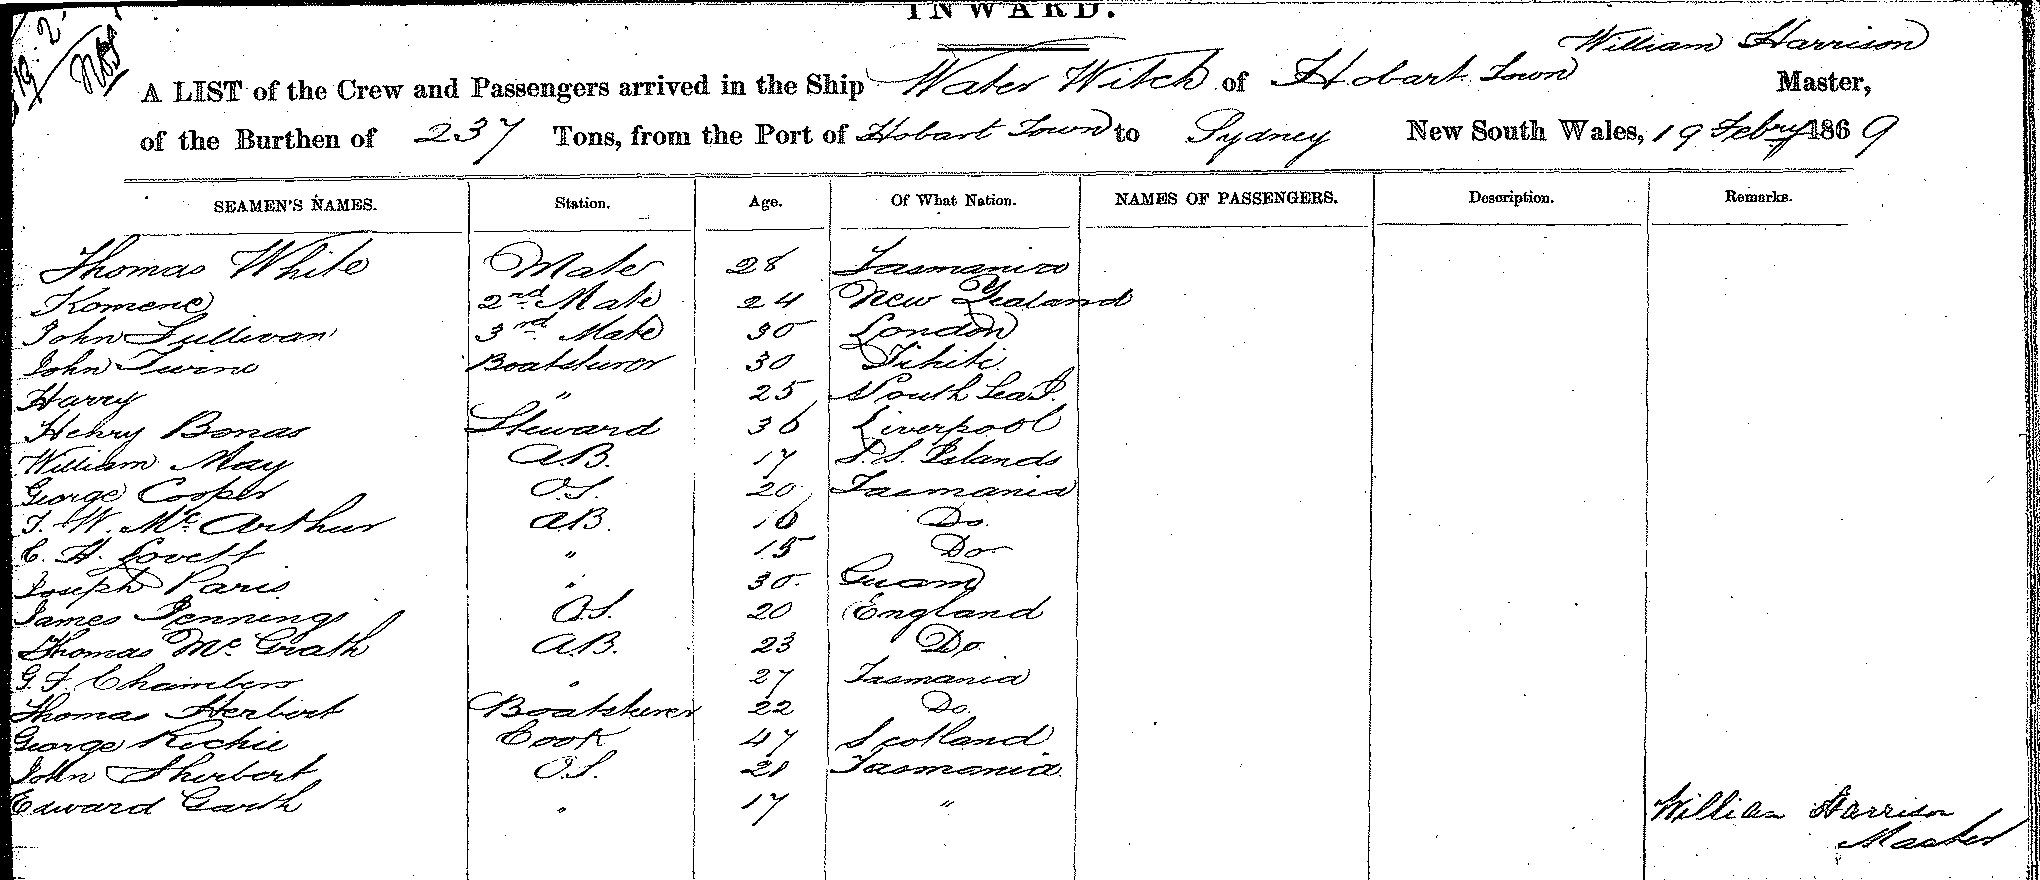 19.2.
INWARD.
William Harrison
A LIST of the Crew and Passengers arrived in the Ship Water Witch of Hobart Town Master,
of the Burthen of 237 Tons, from the Port of Hobart Town to Sydney New South Wales, 19 Febry 1869
SEAMEN'S NAMES. Station. Age. Of What Nation. NAMES OF PASSENGERS. Description. Remarks.
Thomas White Mate 28 Tasmania
Komene 2nd Mate 24 New Zealand
John Sullivan 3rd Mate 30 London
John Twine Boatsteerer 30 Tihiti
Harry " 25 South Sea I.
Henry Bonas Steward 36 Liverpool
William May A.B. 17 S. S. Islands
George Cooper O.S. 20 Tasmania
T. W. McArthur A.B. 16 Do.
C. H. Lovett " 15 Do
Joseph Paris " 30 Guam
James Jennings O.S. 20 England
Thomas McGrath A.B. 23 Do
G. F. Chambers " 27 Tasmania
Thomas Herbert Boatsteerer 22 Do.
George Richie Cook 47 Scotland
John Sherbert O.S. 21 Tasmania
Edward Garth " 17 "
William Harrison
Master